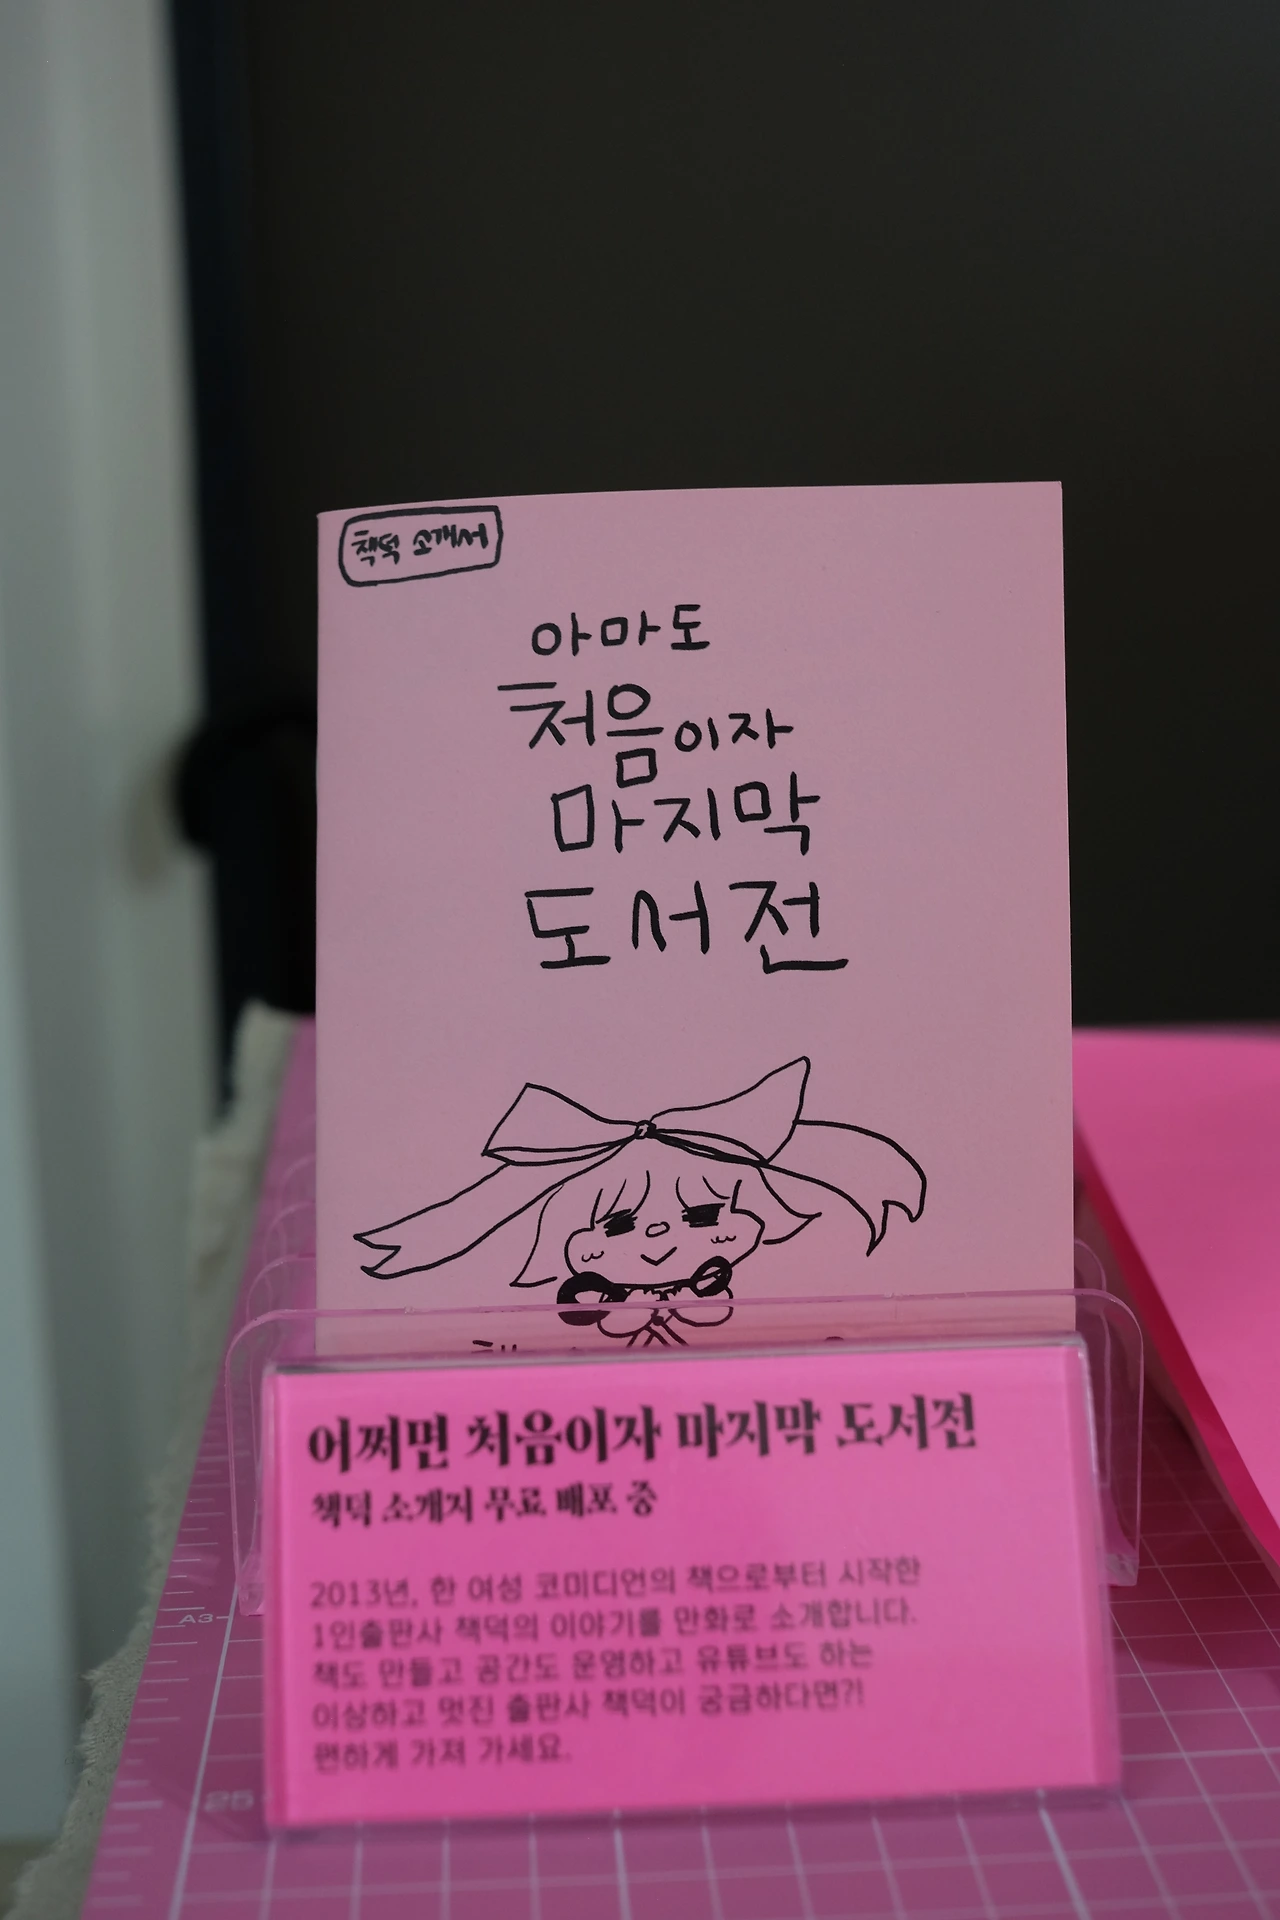 책덕 소개서
아마도
처음이자
마지막
도서전
어쩌면 처음이자 마지막 도서전
책덕 소개지 무료 배포 중
2013년, 한 여성 코미디언의 책으로부터 시작한
1인출판사 책덕의 이야기를 만화로 소개합니다.
책도 만들고 공간도 운영하고 유튜브도 하는
이상하고 멋진 출판사 책덕이 궁금하다면?!
편하게 가져 가세요.
A3
25